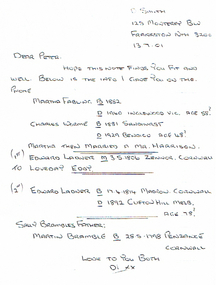 Smith
125 Monterey Blv
Frankston Nth 3200
13.9.01
Dear Peter
Hope this note finds you fit and
well. Below is the info I gave you on the
phone
Martha B 1882
D 1940 Vic. age 58!
Charles B 1881 Sandhurst
D 1929 Bendigo age 48!
Martha then married a Mr. Harrison.
(1st) Edward Ladner M 3.5.1806 Zennor, Cornwall
to Loveday Eddy
(2nd) Edward Ladner B 17.6.1814 Cornwall
D 1892 Clifton Hill Melb,
age 78!
Brambles Father;
Martin Bramble B 25.5.1798 Penzance
Cornwall
Love to you both
Di xx